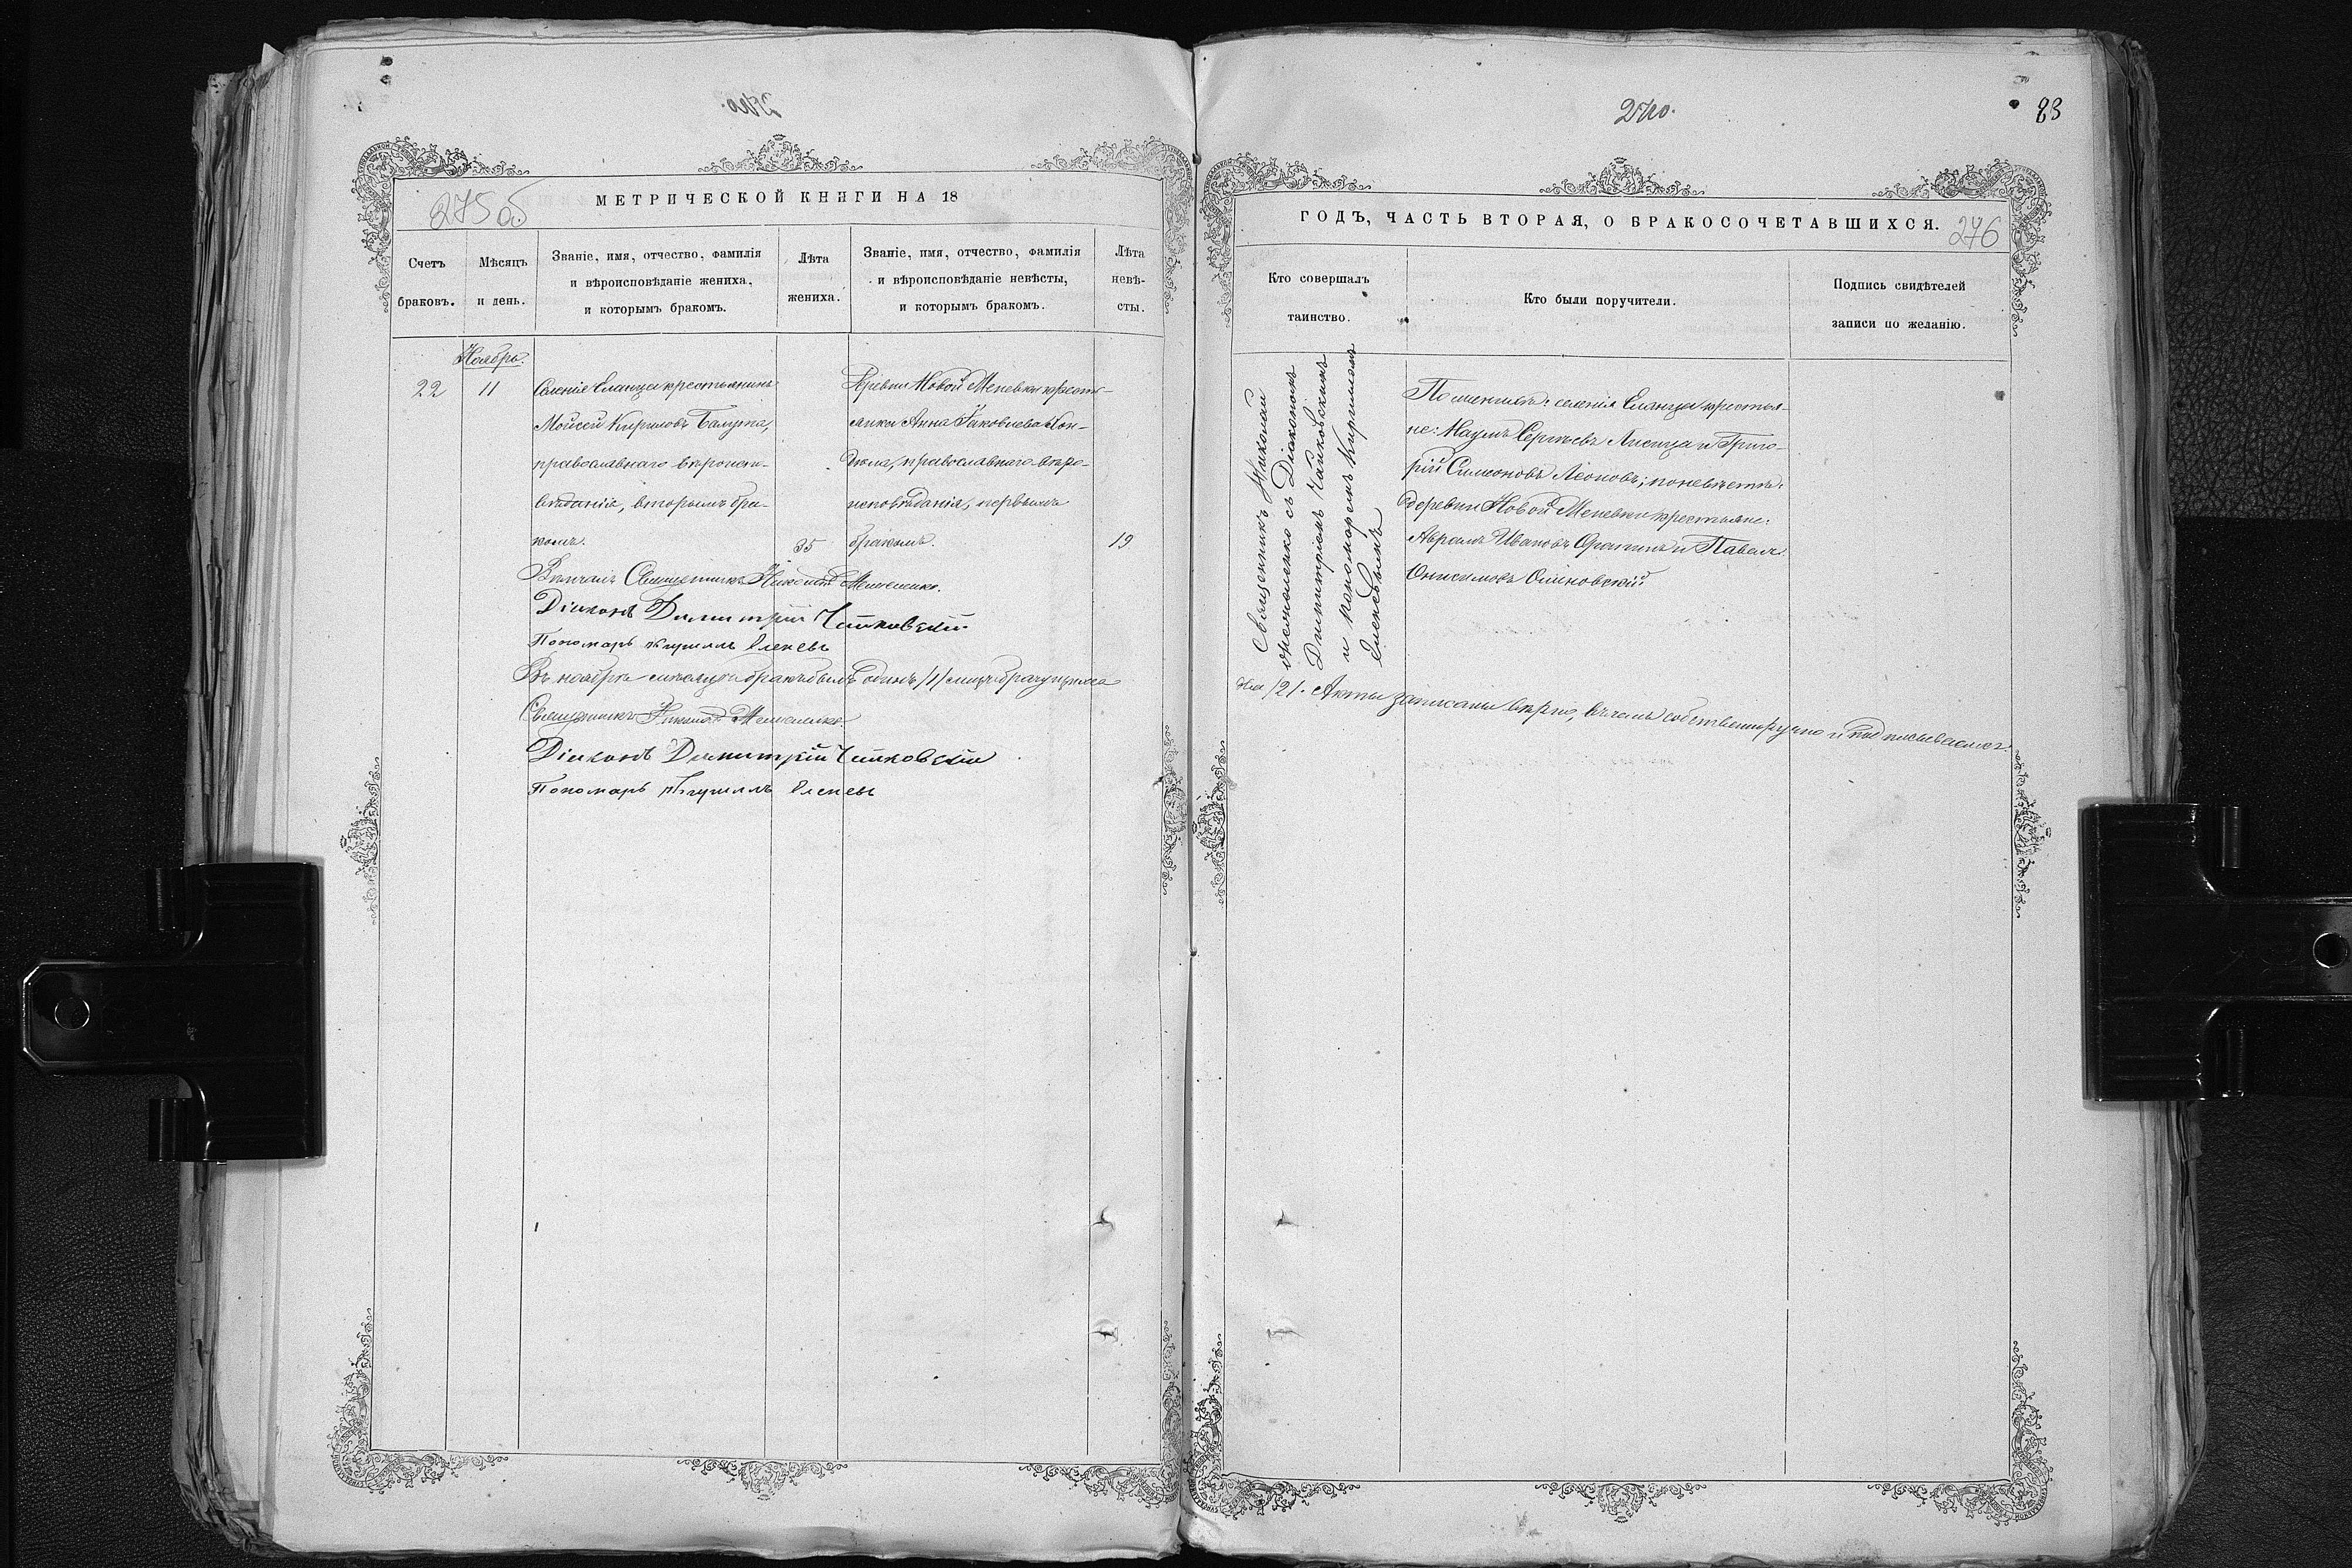 240.
83
275 об
МЕТРИЧЕСКОЙ КНИГИ НА 18
Счетъ
браковъ.
Мѣсяцъ
и день.
Званіе, имя, отчество, фамилія
и вѣроисповѣданіе жениха,
и которымъ бракомъ.
Лѣта
жениха.
Званіе, имя, отчество, фамилія
и вѣроисповѣданіе невѣсты,
и которымъ бракомъ.
Лѣта
невѣ-
сты.
Ноябрь.
22
11
Селенія Еланца крестьянинъ
Моисей Кириловъ
православнаго вѣроиспо-
вѣданія, вторымъ бра-
комъ.
35
Деревни Новой крестья-
нка Анна Яковлева
православнаго вѣро-
исповѣданія, первымъ
бракомъ.
19
Вѣнчалъ Священникъ Николай
Діаконъ Димитрій Чайковскій
Пономарь Кириллъ Еленевъ
Въ ноябрѣ мѣсяцѣ бракъ былъ одинъ /1/
Священникъ Николай
Діаконъ Димитрій Чайковскій
Пономарь Кириллъ Еленевъ
ГОДЪ, ЧАСТЬ ВТОРАЯ, О БРАКОСОЧЕТАВШИХСЯ.
276
Кто совершалъ
таинство.
Кто были поручители.
Подпись свидѣтелей
записи по желанію.
Священникъ Николай
съ Діакономъ
Димитріемъ Чайковскимъ
и пономаремъ Кирилломъ
Еленевымъ
По женихѣ: селенія Еланца крестья-
не: Наумъ Сергѣевъ Лисица и Григо-
рій Симеоновъ Леоновъ; по невѣстѣ:
деревни Новой крестьяне:
Аврамъ Ивановъ и Павелъ
Онисимовъ
/2/. Акты записаны вѣрно, въ чемъ собственноручно и подписываемся.